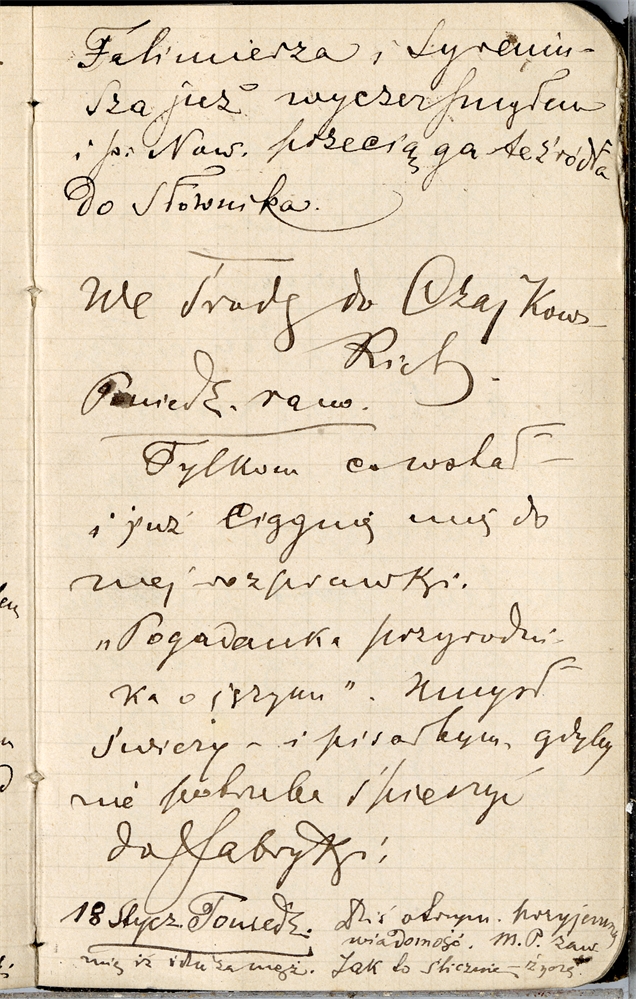 Falimierza i Syreniu-
sza już wyczerpnąłem
i p. Now. przeciąga te źródła
do Słownika.
We środę do Czajkows-
kich.
Poniedz. rano.
Tylkom co wstał
i już ciągnie mię do
mej rozprawki.
„Pogadanka przyrodni-
ka o języku”. Umysł
świeży – i pisałbym, gdyby
nie potrzeba śpieszyć
do fabryki.
18 Stycz. Poniedz. Dziś otrzym. przyjemną
wiadomość. M. P. zaw.
mię iż idzie za mąż. Jak to ślicznie –